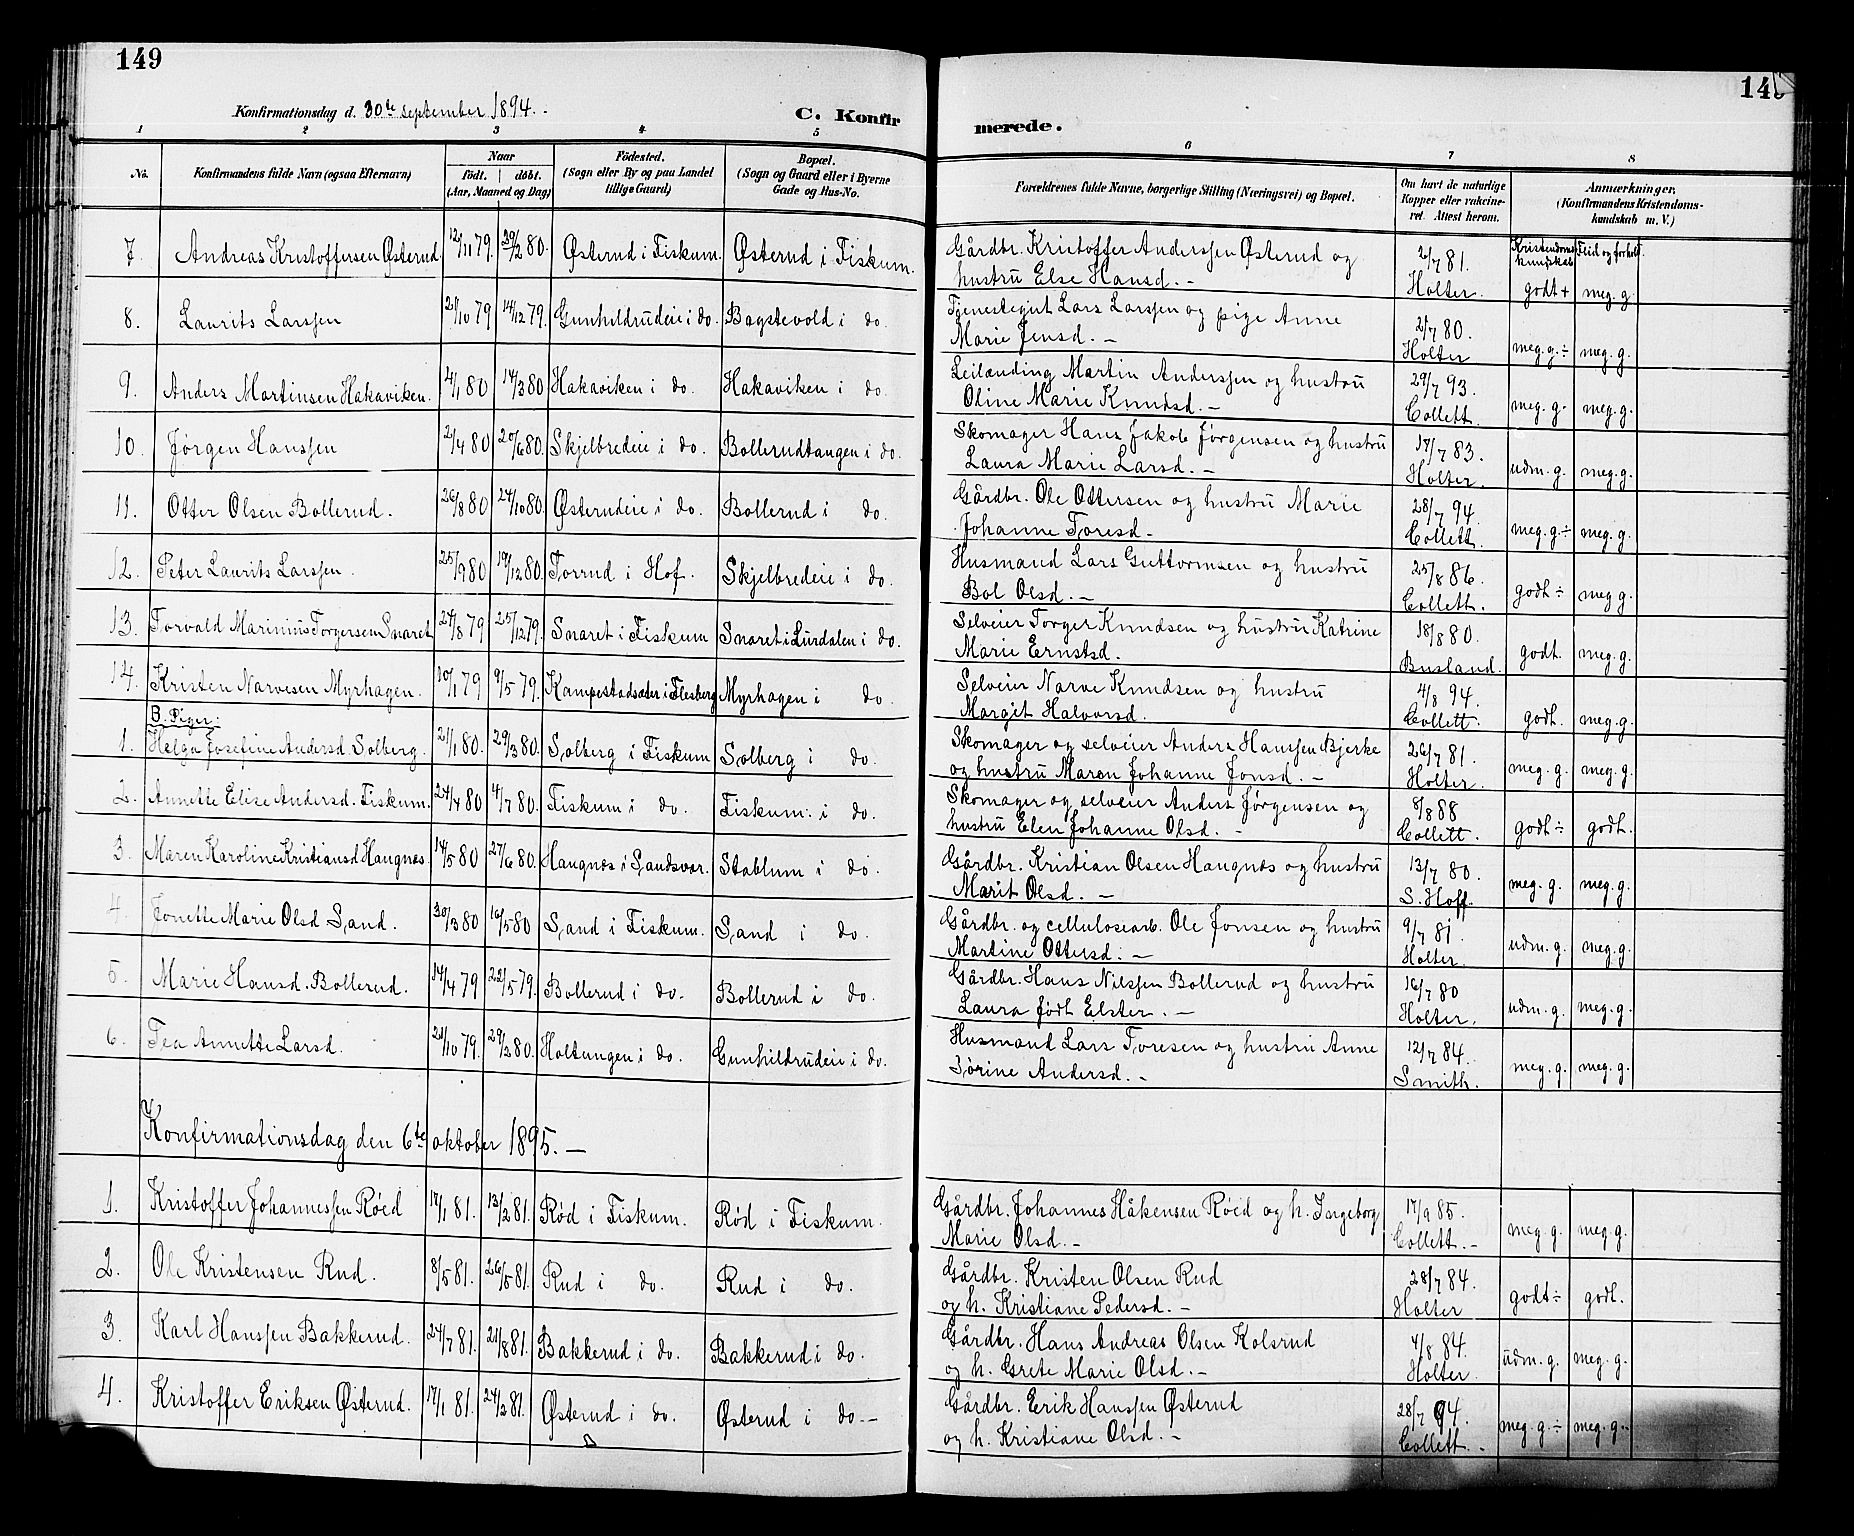 149
149
Konfirmationsdag d. 30te september 1894. -
C. Konfirmerede.
1 2 3 4 5 6 7 8
No. | Konfirmandens fulde Navn (ogsaa Efternavn) | Naar født. | døbt. (Aar, Maaned og Dag) | Fødested. (Sogn eller By og paa Landet tillige Gaard) | Bopæl. (Sogn og Gaard eller i Byerne Gade og Hus-No. | Forældrenes fulde Navne, borgerlige Stilling (Næringsvei) og Bopæl. | Om havt de naturlige Kopper eller vakcineret. Attest herom. | Anmærkninger. (Konfirmandens Kristendomskundskab m. V.)
Kristendomskundskab | Flid og forhold.
7. Andreas Kristoffersen Østerud | 12/11 79 | 29/2 80. | Østerud i Fiskum. | Østerud i Fiskum. | Gårdbr. Kristoffer Anderssen Østerud og hustru Else Hansd. - | 2/7 81. Holter. | godt + | meg. g.
8. Laurits Larssen | 21/10 79 | 14/12 79. | Gunhildrudeie i do. | Bagstevold i do. | Tjenestegut Lars Larssen og pige Anne Marie Jensd. - | 2/7 80. Holter | meg. g. ÷ | meg. g.
9. Anders Martinsen Hakaviken. | 4/1 80 | 14/3 80 | Hakaviken i do. | Hakaviken i do. | Leilænding Martin Anderssen og hustru Oline Marie Knudsd. - | 29/7 93. Collett. | meg. g. | meg. g.
10. Jørgen Hanssen | 2/4 80 | 20/6 80. | Skjelbredeie i do. | Bollerudtangen i do. | Skomager Hans Jakob Jørgensen og hustru Laura Marie Larsd. - | 17/7 83. Holter. | udm. g. | meg. g.
11. Otter Olsen Bollerud. | 26/8 80 | 24/10 80. | Østerudeie i do. | Bollerud i do. | Gårdbr. Ole Ottersen og hustru Marie Johanne Toresd. - | 28/7 94. Collett. | meg. g. ÷ | meg. g.
12. Peter Laurits Larssen. | 25/9 80 | 19/12 80. | Torrud i Hof. | Skjelbredeie i do. | Husmand Lars Guttormsen og hustru Bol Olsd. - | 25/8 86. Collett. | godt ÷ | meg g.
13. Torvald Marinius Torgersen Snaret | 24/8 79 | 25/12 79. | Snaret i Fiskum | Snaret i Lurdalen i do. | Selveier Torger Knudsen og hustru Katrine Marie Ernstsd. | 18/8 80. Busland. | godt. | meg. g.
14. Kristen Narvesen Myrhagen. | 10/1 79 | 9/5 79. | Kampestadsæter i Flesberg | Myrhagen i do. | Selveier Narve Knudsen og hustru Margit Halvorsd. | 4/8 94. Collett. | godt. | meg. g.
B. Piger:
1. Helga Josefine Andersd. Solberg. | 21/1 80. | 29/3 80. | Solberg i Fiskum | Solberg i do. | Skomager og selveier Anders Hanssen Bjerke og hustru Maren Johanne Jonsd. - | 26/7 81. Holter. | meg. g. | meg. g.
2. Annette Elise Andersd. Fiskum. | 24/4 80 | 4/7 80. | Fiskum i do. | Fiskum: i do. | Skomager og selveier Anders Jørgensen og hustru Elen Johanne Olsd. - | 8/8 88 Collett. | godt ÷ | godt.
3. Maren Karoline Kristiansd Haugnæs. | 14/5 80 | 27/6 80. | Haugnæs i Sandsvær. | Stablum i do. | Gårdbr. Kristian Olsen Haugnæs og hustru Marit Olsd. - | 13/7 80. S. Hoff. | meg. g. | meg. g.
4. Jonette Marie Olsd Sand. | 30/3 80 | 16/5 80 | Sand i Fiskum. | Sand i do. | Gårdbr. og cellulosearb. Ole Jonsen og hustru Martine Ottersd. - | 9/7 81. Holter. | udm. g. | meg. g.
5. Marie Hansd. Bollerud. | 14/4 79 | 22/5 79. | Bollerud i do. | Bollerud i do. | Gårdbr. Hans Nilssen Bollerud og hustru Laura født Elster. - | 16/7 80 Holter. | udm. g. | meg. g.
6. Tea Annette Larsd. | 21/10 79. | 29/2 80. | Holtungen i do. | Gunhildrudeie i do. | Husmand Lars Toresen og hustru Anne Sørine Andersd. - | 12/7 84. Smith. | meg. g. | meg. g.
Konfirmationsdag den 6te oktober 1895. -
1. Kristoffer Johannessen Röed | 17/1 81. | 13/2 81. | Röd i Fiskum. | Röd i Fiskum. | Gårdbr. Johannes Håkensen Röed og h. Ingeborg Marie Olsd. - | 17/9 85. Collett. - | meg. g. | meg. g.
2. Ole Kristensen Rud. | 8/5 81. | 26/5 81. | Rud i do. | Rud i do. | Gårdbr. Kristen Olsen Rud og h. Kristiane Pedersd. - | 28/7 84. Holter | godt ÷ | godt.
3. Karl Hanssen Bakkerud. | 24/7 81. | 21/8 81. | Bakkerud i do. | Bakkerud i do. | Gårdbr. Hans Andreas Olsen Kolsrud og h. Grete Marie Olsd. - | 4/8 84. Holter. | udm. g. | meg. g.
4. Kristoffer Eriksen Østerud. | 17/1 81. | 24/2 81. | Østerud i do. | Østerud i do. - | Gårdbr. Erik Hanssen Østerud og h. Kristiane Olsd. - | 28/7 94. Collett. - | meg. g. ÷ | meg. g.